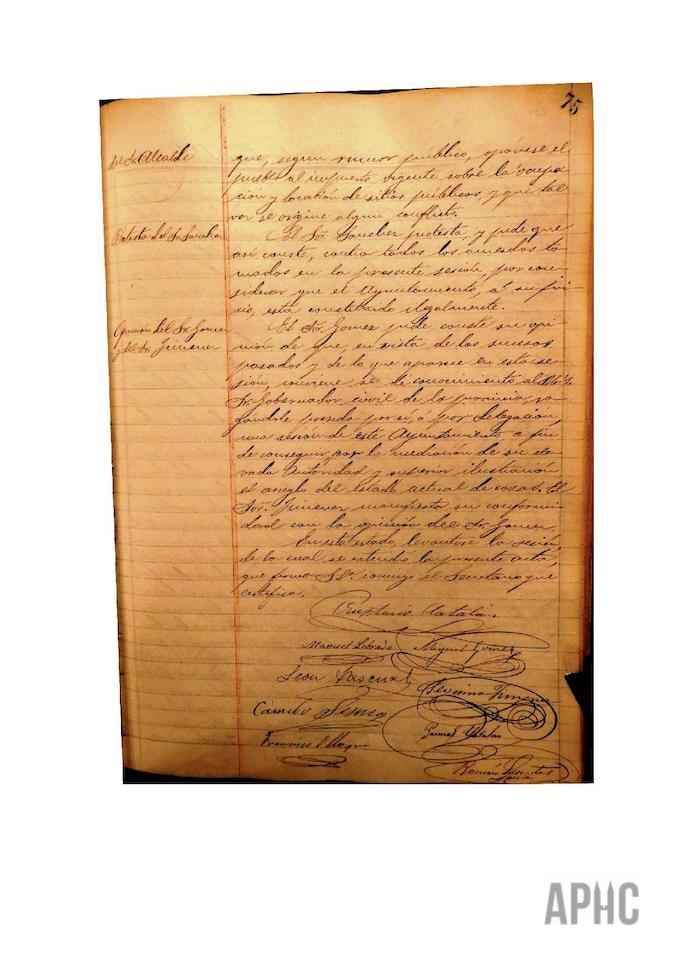 75
del Sr. Alcalde
que, segun rumor público, opónese el
pueblo al impuesto vigente sobre la ocupa-
ción y locación de sitios públicos, y que tal
vez se origine algun conflicto.
Protesta del Sr. Sanchez
El Sor. Sanchez protesta y pide que
así conste, contra todos los acuerdos to-
mados en la presente sesión, por con-
siderar que el Ayuntamiento, á su jui-
cio, está constituido ilegalmente.
Opinion del Sr. Gomez
y del Sr. Jimenez
El Sr. Gomez pide conste su opi-
nión de que, en vista de los sucesos
pasados y de lo que aparece en esta se-
sión, conviene se dé conocimiento al
Sr. Gobernador civil de la provincia, ro-
gándole presida por sí, ó por delegación,
una sesión de este Ayuntamiento a fin
de conseguir por la mediación de su ele-
vada autoridad y superior ilustración
el arreglo del estado actual de cosas. El
Sor. Jimenez manifiesta su conformi-
dad con la opinión del Sr. Gomez.
En este estado levantóse la sesión,
de la cual se extendió la presente acta,
que firma S.Sª. conmigo el Secretario que
certifico.
Catalán
Manuel Miguel Gomez
León Pascual Severino Jimenez
Camilo
Francisco Catalan
Ramón
APHC